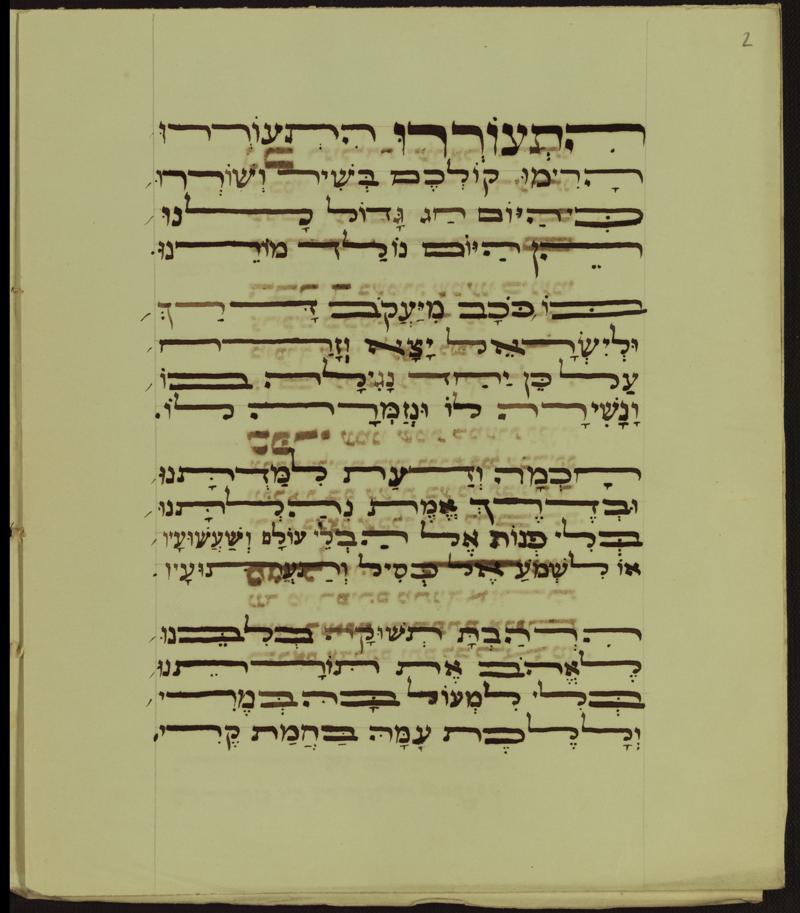 2
הִתְעוֹרְרוּ הִתְעוֹרְרוּ
הָרִימוּ קוֹלְכֶם בְּשִׁיר וְשׁוֹרְרוּ,
כִּי הַיּוֹם חַג גָּדוֹל לָנוּ
הֵן הַיּוֹם נוֹלַד מוֹרֵנוּ.
בּוֹ כֹּכָב מִיַּעֲקֹב דָּרַךְ,
וּלְיִשְׂרָאֵל יָצָא וְזָרַח,
עַל כֵּן יַחַד נָגִילָה בּוֹ
וְנָשִׁירָה לוֹ וּנְזַמְּרָה לוֹ.
חָכְמָה וְדַעַת לִמַּדְתָּנוּ,
וּבְדֶרֶךְ אֱמֶת נִהַלְתָּנוּ,
בְּלִי פְנוֹת אֶל הַבְלֵי עוֹלָם וְשַׁעֲשׁוּעָיו,
אוֹ לִשְׁמֹעַ אֶל כְּסִיל וְתַעְתּוּעָיו.
הִרְהַבְתָּ תְשׁוּקָה בְּלִבֵּנוּ,
לֶאֱהֹב אֶת תּוֹרָתֵנוּ,
בְּלִי לִמְעוֹל בָּהּ בְּמֶרִי,
וְלָלֶכֶת עִמָּהּ בַּחֲמַת קֶרִי.